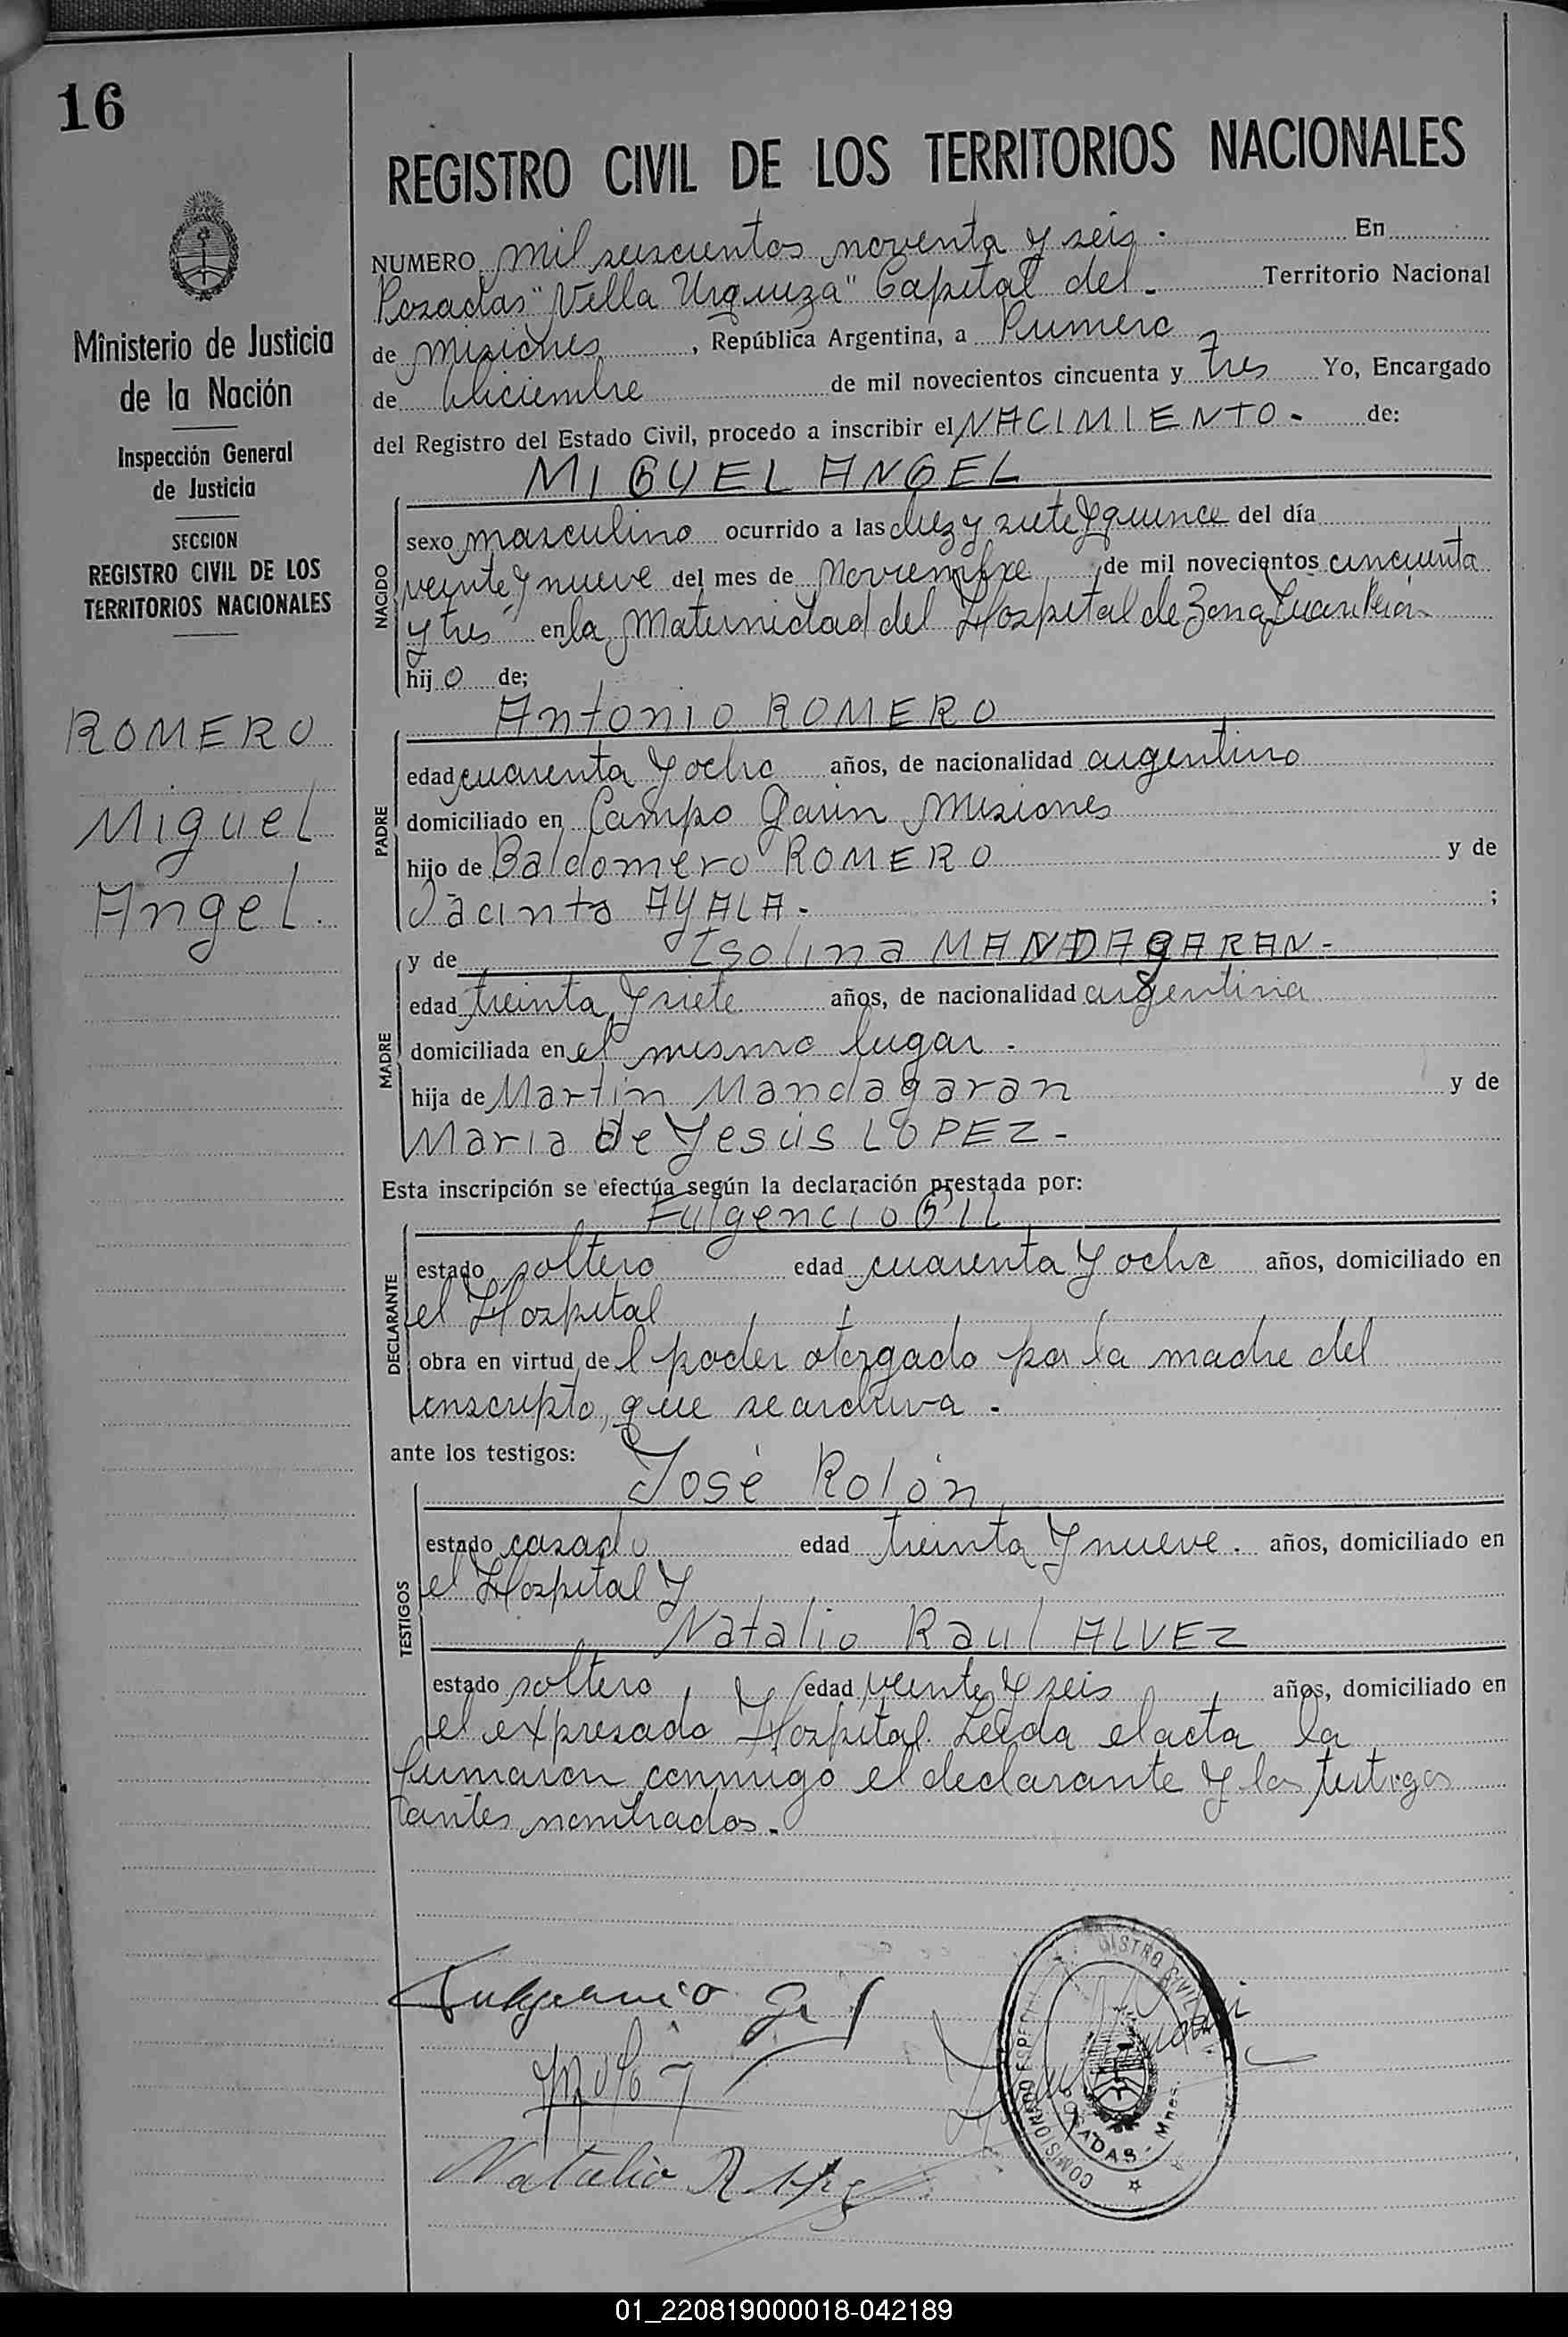 16
REGISTRO CIVIL DE LOS TERRITORIOS NACIONALES
Ministerio de Justicia
de la Nación
Inspección General
de Justicia
SECCION
REGISTRO CIVIL DE LOS
TERRITORIOS NACIONALES
ROMERO
Miguel
Angel.
NUMERO mil seiscientos noventa y seis. En
Posadas "Villa Urquiza" Capital del Territorio Nacional
de Misiones, República Argentina, a Primero
de Diciembre de mil novecientos cincuenta y tres Yo, Encargado
del Registro del Estado Civil, procedo a inscribir el NACIMIENTO- de:
MIGUEL ANGEL
NACIDO
sexo masculino ocurrido a las diez y siete y quince del día
veinte y nueve del mes de Noviembre de mil novecientos cincuenta
y tres en la Maternidad del Hospital de Zona Juan Perón
hijo de;
Antonio ROMERO
PADRE
edad cuarenta y ocho años, de nacionalidad argentino
domiciliado en Campo Garin Misiones
hijo de Baldomero ROMERO y de
Jacinta AYALA.;
y de Isolina MANDAGARAN-
MADRE
edad treinta y siete años, de nacionalidad argentina
domiciliada en el mismo lugar.
hija de Martín Mandagaran y de
Maria de Jesús LOPEZ-
Esta inscripción se efectúa según la declaración prestada por:
Fulgencio GIL
DECLARANTE
estado soltero edad cuarenta y ocho años, domiciliado en
el Hospital
obra en virtud del poder otorgado por la madre del
inscripto, que se archiva.
ante los testigos:
José Rolón
TESTIGOS
estado casado edad treinta y nueve. años, domiciliado en
el Hospital y
Natalio Raul ALVEZ
estado soltero, edad veinte y seis años, domiciliado en
el expresado Hospital. Leída el acta la
firmaron conmigo el declarante y los testigos
antes nombrados.-
Fulgencio Gil
Natalio R
REGISTRO CIVIL
COMISIONADO ESPECIAL
POSADAS - Mnes.
01_220819000018-042189